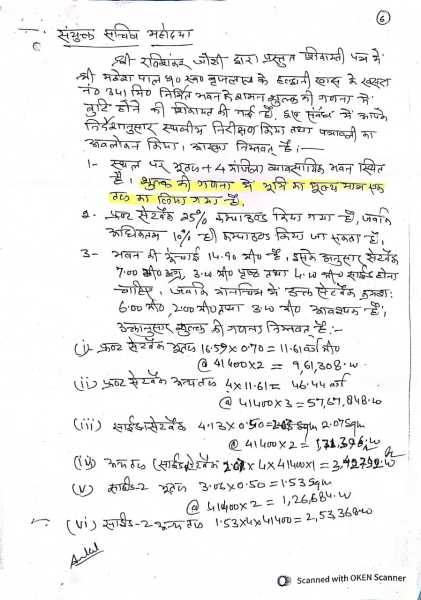 6
संयुक्त सचिव महोदया
श्री रविशंकर जोशी द्वारा प्रस्तुत शिकायती पत्र में
श्री महेश पाल पु० स्व० बृजलाल के हल्द्वानी खास के खसरा
नं० 341 मि० निर्मित भवन के शमन शुल्क की गणना में
त्रुटि होने की शिकायत की गई है, इस संबंध में आपके
निर्देशानुसार स्थलीय निरीक्षण किया तथा पत्रावली का
अवलोकन किया। आख्या निम्नवत् है:—
1- स्थल पर भूतल+4 मंजिला व्यवसायिक भवन स्थित
है। शुल्क की गणना में भूमि का मूल्य मात्र एक
तल का लिया गया है,
2. फ्रन्ट सेटबैक 25% कम्पाउण्ड किया गया है, जबकि
अधिकतम 10% ही कम्पाउण्ड किया जा सकता है,
3- भवन की ऊंचाई 14.90 मी० है। इसके अनुसार सेटबैक
7.00 मी० अग्र, 3.00 मी० पृष्ठ तथा 4.00 मी० साईड होना
चाहिए, जबकि मानचित्र में उक्त सेटबैक क्रमशः
6.00 मी०, 2.00 मी० तथा 3.00 मी० आवश्यक है,
उक्तानुसार शुल्क की गणना निम्नवत् है:-
(i) फ्रन्ट सेटबैक भूतल 16.59×0.70 = 11.61 वर्ग मी०
@ 41400×2 = 9,61,308.00
(ii) फ्रन्ट सेटबैक अन्य तल 4×11.61= 46.44 वर्ग
@ 41400×3 = 57,67,848.00
(iii) साईड सेटबैक 4.13×0.50 = 2.07 Sqm
@ 41400×2 = 1,71,396.00
(iv) अन्य तल (साईड सेटबैक 2.07×4×41400×1 = 3,42,792.00
(v) साईड-2 भूतल 3.06×0.50 = 1.53 Sqm
@ 41400×2 = 1,26,684.00
(vi) साईड-2 अन्य तल 1.53×4×41400 = 2,53,368.00
Scanned with OKEN Scanner